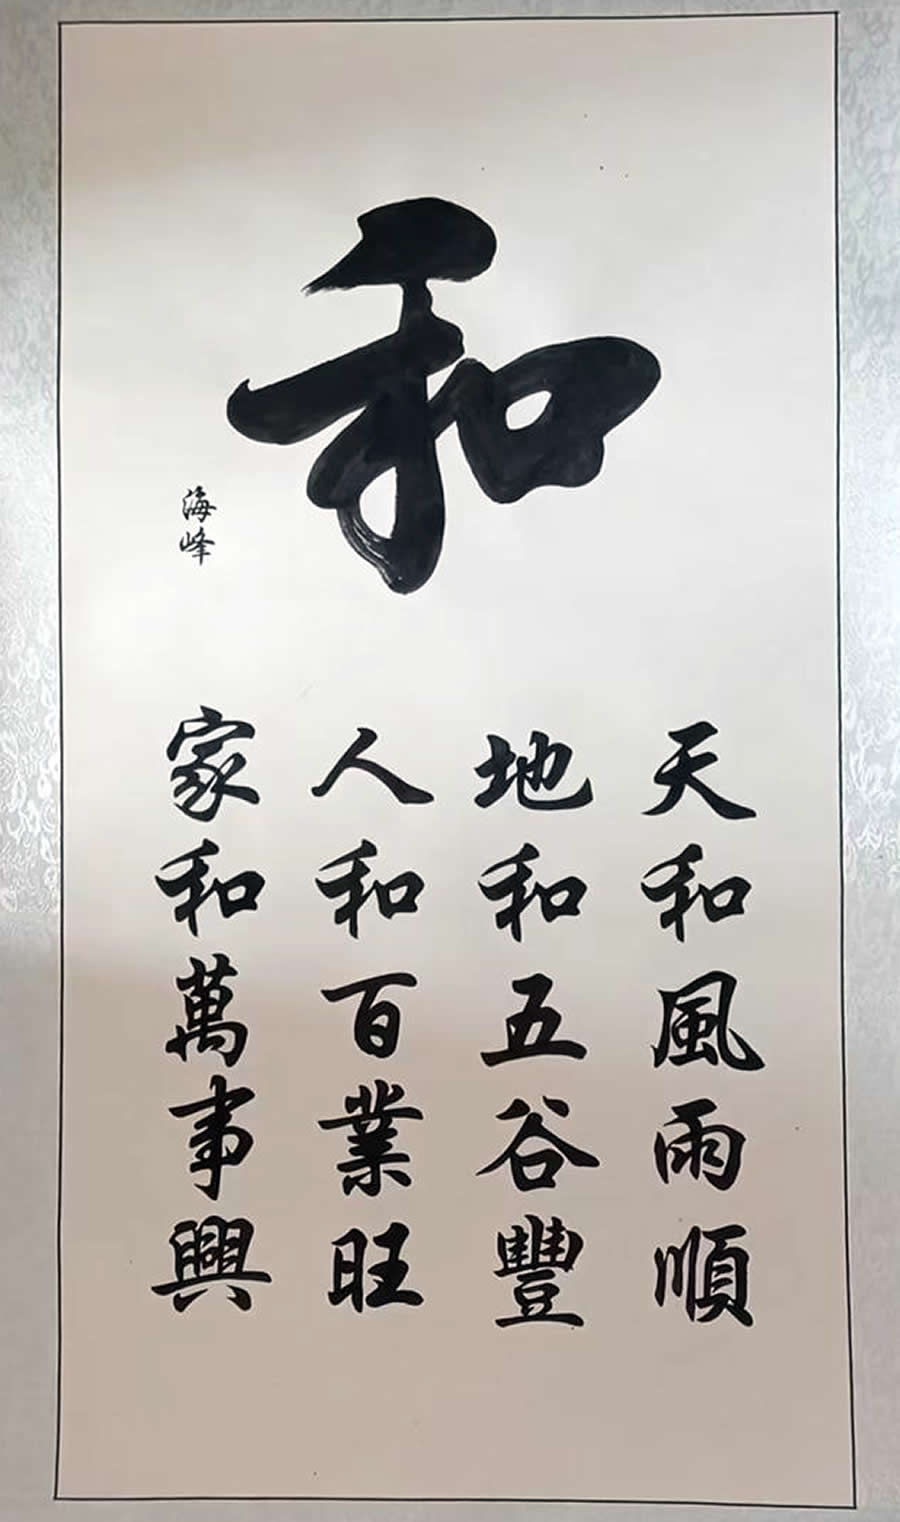 和
海峰
天和風雨順
地和五谷豐
人和百業旺
家和萬事興